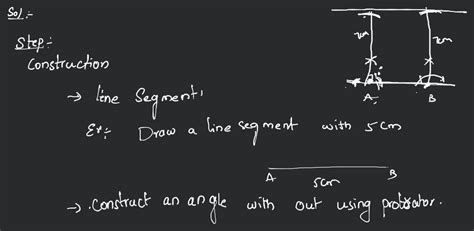 Sol:-
Step:-
Construction
→ line Segment,
Ex:- Draw a line segment with 5 cm
A B
5cm
→ Construct an angle with out using protrator.
7cm 7cm
A B